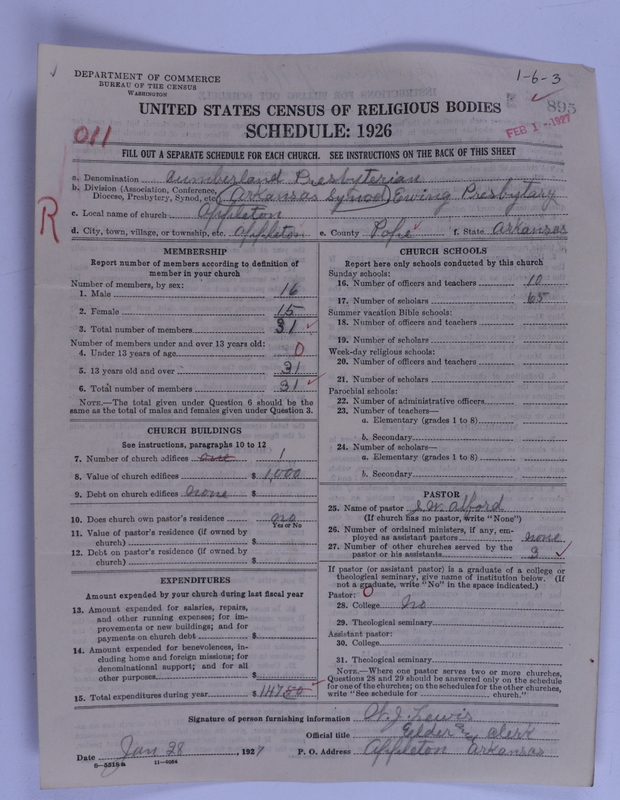 DEPARTMENT OF COMMERCE
BUREAU OF THE CENSUS
WASHINGTON
1-6-3
895
FEB 1 - 1927
UNITED STATES CENSUS OF RELIGIOUS BODIES
SCHEDULE: 1926
011
R
FILL OUT A SEPARATE SCHEDULE FOR EACH CHURCH. SEE INSTRUCTIONS ON THE BACK OF THIS SHEET
a. Denomination Cumberland Presbyterian
b. Division (Association, Conference, Diocese, Presbytery, Synod, etc) Arkansas Synod, Ewing Presbytary
c. Local name of church Appleton
d. City, town, village, or township, etc. Appleton e. County Pope f. State Arkansas
MEMBERSHIP
Report number of members according to definition of
member in your church
Number of members, by sex:
1. Male 16
2. Female 15
3. Total number of members 31
Number of members under and over 13 years old:
4. Under 13 years of age 0
5. 13 years old and over 31
6. Total number of members 31
NOTE.—The total given under Question 6 should be the
same as the total of males and females given under Question 3.
CHURCH BUILDINGS
See instructions, paragraphs 10 to 12
7. Number of church edifices one 1
8. Value of church edifices $ 1,000
9. Debt on church edifices none $
10. Does church own pastor's residence no
Yes or No
11. Value of pastor's residence (if owned by
church) $
12. Debt on pastor's residence (if owned by
church) $
EXPENDITURES
Amount expended by your church during last fiscal year
13. Amount expended for salaries, repairs,
and other running expenses; for im-
provements or new buildings; and for
payments on church debt $
14. Amount expended for benevolences, in-
cluding home and foreign missions; for
denominational support; and for all
other purposes $
15. Total expenditures during year $ 147.50
CHURCH SCHOOLS
Report here only schools conducted by this church
Sunday schools:
16. Number of officers and teachers 10
17. Number of scholars 65
Summer vacation Bible schools:
18. Number of officers and teachers
19. Number of scholars
Week-day religious schools:
20. Number of officers and teachers
21. Number of scholars
Parochial schools:
22. Number of administrative officers
23. Number of teachers—
a. Elementary (grades 1 to 8)
b. Secondary
24. Number of scholars—
a. Elementary (grades 1 to 8)
b. Secondary
PASTOR
25. Name of pastor J. W. Alford
(If church has no pastor, write "None")
26. Number of ordained ministers, if any, em-
ployed as assistant pastors none
27. Number of other churches served by the
pastor or his assistants 3
If pastor (or assistant pastor) is a graduate of a college or
theological seminary, give name of institution below. (If
not a graduate, write "No" in the space indicated.)
Pastor: 0
28. College no
29. Theological seminary
Assistant pastor:
30. College
31. Theological seminary
NOTE.—Where one pastor serves two or more churches,
Questions 28 and 29 should be answered only on the schedule
for one of the churches; on the schedules for the other churches,
write "See schedule for church."
Signature of person furnishing information W. J. Lewis
Official title Elder & Clerk
Date Jan 28, 1927 P. O. Address Appleton Arkansas
8-5518a 11-9084